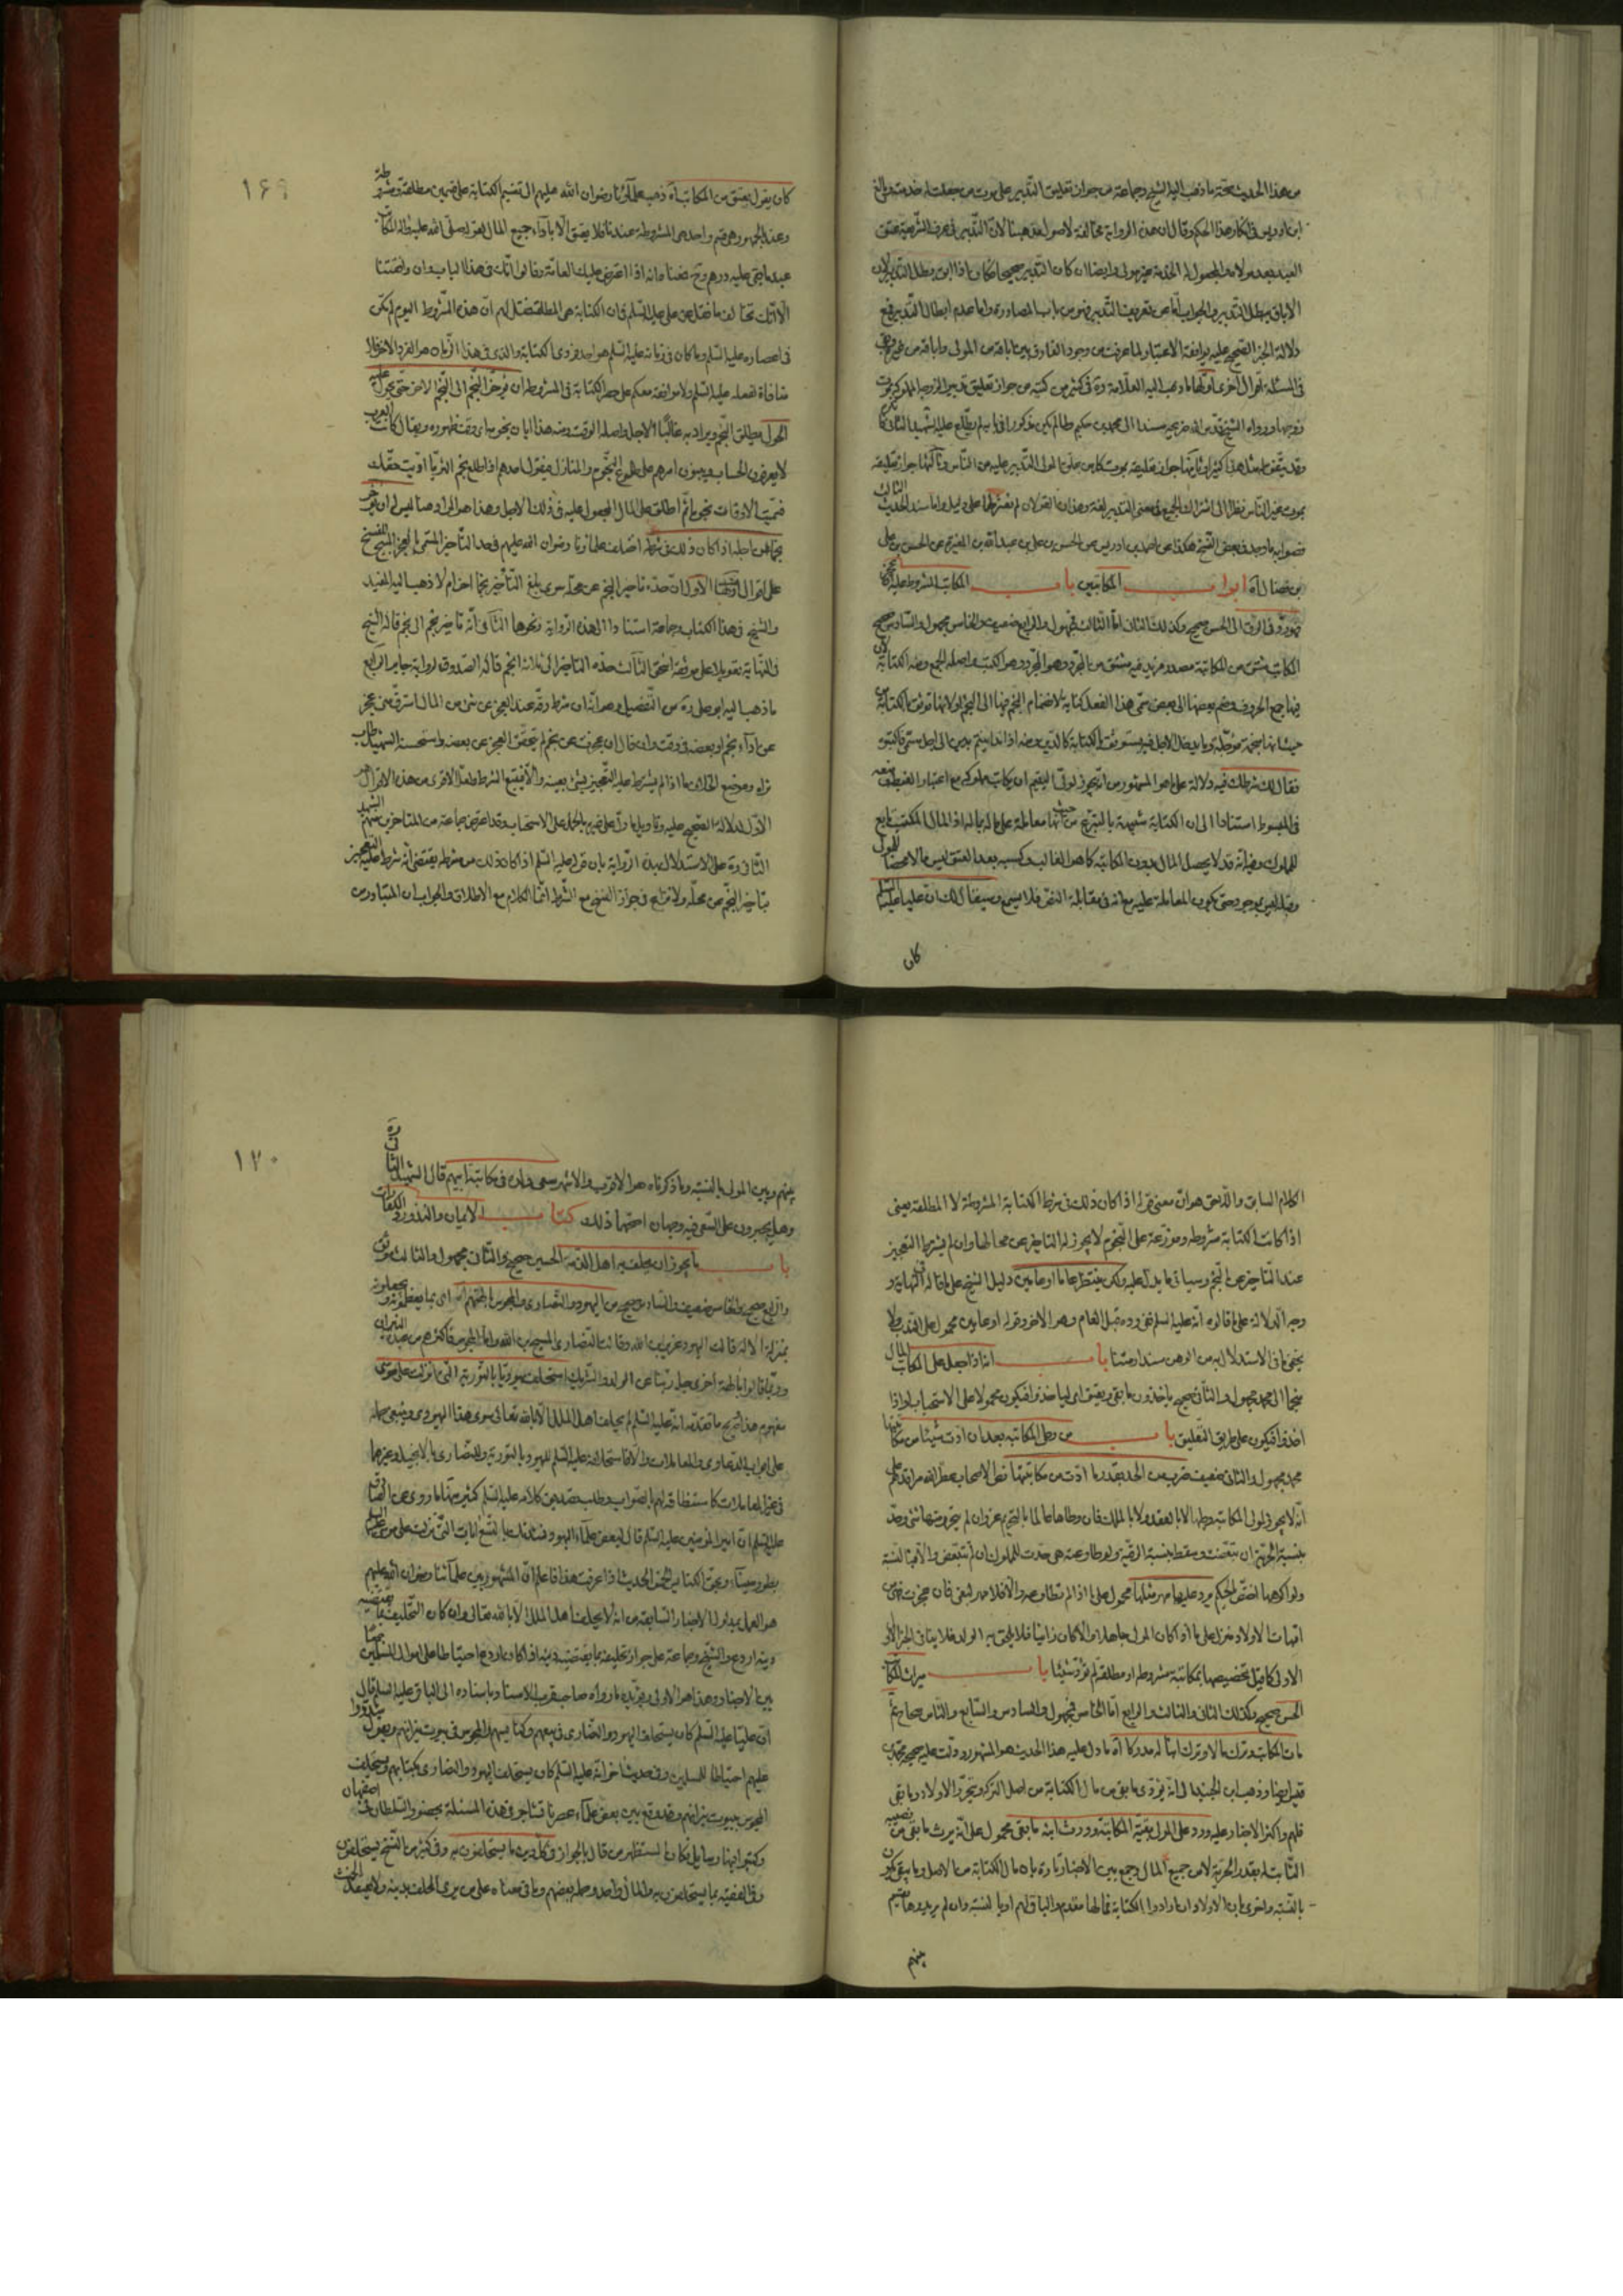 من هذا الحديث صحة ما ذهب اليه الشيخ وجماعة من جواز تعليق التدبير على موت من جعلت له خدمته وبالغ
ابن ادريس في انكار هذا الحكم وقال ان هذه الرواية مخالفة لاصول مذهبنا لان التدبير في عرف الشريعة عتق
العبد بعد موت مولاه والمجعول له الخدمة غير مولى وايضا ان كان التدبير صحيحا لكان اذا ابق بطل التدبير لان
الاباق يبطل التدبير والجواب اما عن تعريف التدبير فهو من باب المصادرة واما عدم ابطال التدبير فمع
دلالة الخبر الصحيح عليه
في المسئلة اقوال اخرى اولها ما ذهب اليه العلامة ره في كثير من كتبه من جواز تعليق تدبير
بموت غير الناس نظرا الى اشتراك الجميع في معنى التدبير لغة وهذان القولان لم نعثر لهما على دليل واما سند الحديث الثالث
فصوابه ما وجد في بعض النسخ هكذا عن احمد بن ادريس عن الحسن بن علي بن عبد الله بن المغيرة عن الحسن بن علي
بن فضال اه ابواب المكاتبين باب المكاتب المشروط عليه
الى الحسن صحيح وكذلك الثاني اما الثالث فمجهول والرابع ضعيف والخامس مجهول والسادس صحيح
المكاتب مشتق من المكاتبة مصدر مزيد فيه مشتق من المجرد وهو الكتب واصله الجمع ومنه الكتابة
فيها جمع الحروف وضم بعضها الى بعض سمي هذا العقد كتابة لانضمام النجم فيها الى النجم او لانها توثق بالكتابة
حيث انها منجمة مؤجلة وما يدخله الاجل فيه يستوثق بالكتابة كالدين ومنه اذا تداينتم بدين الى اجل مسمى فاكتبوه
فقال لك شرطك فيه دلالة على ما هو المشهور من انه يجوز لولي اليتيم ان يكاتب مملوكه مع اعتبار الغبطة
في المبسوط استنادا الى ان الكتابة شبيهة بالتبرع من حيث انها معاملة على ماله بماله اذ المال المكتسب تابع
للمملوك وفيه انه قد لا يحصل المال بدون المكاتبة كما هو الغالب وكسبه بعد العتق ليس مالا محضا للمولى
وقبله ليس بموجود حتى يكون المعاملة عليه مع انه في مقابلة النص فلا يسمع وسيقال لك ان عليا عليه السلم
كان
١٦٩
كان يقول يعتق من المكاتب اه ذهب علماؤنا رضوان الله عليهم الى تقسيم الكتابة على ضربين مطلقة ومشروطة
وعند الجمهور هي قسم واحد هي المشروطة عندنا فلا يعتق الا باداء جميع المال لقوله صلى الله عليه واله المكاتب
عبد ما بقي عليه درهم وح فمعنا وانه اذا اعترض عليك العامة وقالوا انك في هذا الباب وان وافقتنا
الا انك تخالف ما نقل عن علي عليه السلم فان الكتابة هي المطلقة فقل لهم ان هذه الشروط اليوم لم تكن
في اعصاره عليه السلم وما كان في زمانه عليه السلم هو احد فردي الكتابة والذي في هذا الزمان هو الفرد الاخر فلا
منافاة لفعله عليه السلم ولا موافقة معكم على حصر الكتابة في المشروطة ان يؤخر النجم الى النجم الاخر حتى يحول عليه
الحول يطلق النجم ويراد به غالبا الاجل واصله الوقت ومنه هذا ابان نجومه اي وقت ظهوره ويقال كانت العرب
لا يعرفون الحساب ويبنون امرهم على طلوع النجوم والمنازل فيقول احدهم اذا طلع نجم الثريا اديت حقك
فسميت الاوقات نجوما ثم اطلق على المال المجعول عليه في ذلك الاجل وهذا هو المراد هنا ليس له ان يؤخر
نجما عن اجله اذا كان ذلك في شرطه اختلف علماؤنا رضوان الله عليهم في حد التاخير المسمى بالعجز المبيح للفسخ
على اقوال الاول ان حده تاخير النجم عن محله سواء بلغ التاخير نجما اخر ام لا ذهب اليه المفيد
والشيخ في هذا الكتاب وجماعة استنادا الى هذه الرواية ونحوها الثاني انه تاخير نجم الى نجم قاله الشيخ
في النهاية تعويلا على موثقة اسحق الثالث حده التاخير الى ثلاثة انجم قاله الصدوق لرواية جابر الرابع
ما ذهب اليه ابو علي ره من التفصيل وهو انه ان شرط رقه عند العجز عن شيء من المال استرق متى عجز
عن اداء نجم او بعضه في وقته وان قال ان عجزت عن نجم لم يتحقق العجز عن بعضه واستحسنه الشهيد طاب
ثراه وموضع الخلاف ما اذا لم يشترط عليه التعجيز بشيء بعينه والا فيتبع الشرط ولعل الاقوى من هذه الاقوال هو
الاول لدلالة الصحيح عليه وتاويل ما دل على غيره بالحمل على الاستحباب وقد اعترض جماعة من المتاخرين منهم الشهيد
الثاني ره على الاستدلال بهذه الرواية بان قوله عليه السلم اذا كان ذلك من شرطه يقتضي انه شرط عليه التعجيز
بتاخير النجم عن محله ولا نزاع في جواز الفسخ مع الشرط انما الكلام مع الاطلاق والجواب ان المتبادر من
الكلام السابق واللاحق هو ان معنى قوله اذا كان ذلك في شرط الكتابة المشروطة لا المطلقة يعني
اذا كانت الكتابة مشروطة وموزعة على النجوم لا يجوز له التاخير عن محالها وان لم يشترط التعجيز
عند التاخير عن النجم وسياتي ما يدل عليه ولكن ينتظر عاما او عامين دليل الشيخ على ما قاله في النهاية و
وجه الدلالة على ما قالوه انه عليه السلم نفى رده قبل العام وهو الاخر وقوله او عامين محمول على الندب ولا
يخفى ما في الاستدلال به من الوهن سندا ومتنا باب انه اذا جعل على المكاتب المال
منجما الى محمد مجهول والثاني صحيح ياخذون ما بقي ويعتق اي لياخذوا فيكون محمولا على الاستحباب او اذا
اخذوا فيكون على طريق التعليق باب من وطى المكاتبة بعد ان ادت شيئا من مكاتبتها
محمد مجهول والثاني ضعيف ضرب من الحد بقدر ما ادت من مكاتبتها نص الاصحاب عطر الله مراقدهم على
انه لا يجوز لمولى المكاتبة وطيها لا بالعقد ولا بالملك فان وطاها عالما بالتحريم عزر ان لم يتحرر منها شيء وحد
بنسبة الحرية ان تبعضت ويسقط بنسبة الرقية ولو طاوعته هي حدت للمملوك ان لم تتبعض والا فبالنسبة
ولو اكرهها اختص الحكم به ويرد عليها مهر مثلها محمول على ما اذا لم تطاوعه والا فلا مهر لبغي فان عجزت فهي من
امهات الاولاد منزل على ما اذا كان المولى جاهلا والا كان زانيا فلا يلحق به الولد فلا ينافي الخبر الاول
الاولى كما قيل تخصيصها بمكاتبة مشروطة او مطلقة لم تؤد شيئا باب ميراث المكاتب
الحسن صحيح وكذلك الثاني والثالث والرابع اما الخامس فمجهول والسادس والسابع والثامن صحاح ثم
مات المكاتب وترك مالا وترك ابنا له مدركا اه ما دل عليه هذا الحديث هو المشهور ودلت عليه صحيحة محمد بن
قيس ايضا وذهب ابن الجنيد الى انه يؤدى ما بقي من مال الكتابة من اصل التركة ويتحرر الاولاد وما بقي
فلهم واكثر الاخبار عليه ورد على المولى بقية المكاتبة وورث ابنه ما بقي محمول على انه يرث ما بقي من نصيبه
الثابت له بقدر الحرية لا من جميع المال وجمع بين الاخبار تارة بان مال الكتابة من الاصل وما بقي يكون
بالنسبة واخرى بان الاولاد ان ارادوا الكتابة فمالها مقدم والباقي لهم او بالنسبة وان لم يريدوها تقسيم
بينهم
١٧٠
بينهم وبين المولى بالنسبة وما ذكرناه هو الاقرب والاشهر سعى ولده في مكاتبة ابيهم قال الشهيد الثاني ره
وهل يجبرون على السعي فيه وجهان اصحهما ذلك كتاب الايمان والنذور والكفارات
باب ما يجوز ان يحلف به اهل الذمة الحسين صحيح والثاني مجهول والثالث موثق
والرابع صحيح والخامس ضعيف والسادس صحيح من اليهود والنصارى والمجوس بالهتهم اه اي بما يعظمونه ويجعلونه
بمنزلة الاله قالت اليهود عزير ابن الله وقالت النصارى المسيح ابن الله واما المجوس فاكثرهم من عبدة النيران
وربما قالوا بالهة اخرى جل ربنا عن الولد والشريك استحلف يهوديا بالتورية التي انزلت على موسى
مفهوم هذا الخبر مع ما تقدمه انه عليه السلم لم يحلف اهل الملل الا بالله تعالى سوى هذا اليهودي وينبغي حمله
على ابواب الدعاوى والمعاملات والا فاستحلافه عليه السلم لليهود بالتورية والنصارى بالانجيل وغيرهما
في غير المعاملات كاستنطاقه لهم بالصواب وطلب تصديق كلامه عليه السلم كثير منها ما روي عن الصادق
عليه السلم ان امير المؤمنين عليه السلم قال لبعض علماء اليهود نشدتك بالتسع ايات التي انزلت على موسى عليه السلم
بطور سيناء وبحق الكنايس الخمس الحديث اذا عرفت هذا فاعلم ان المشهور بين علمائنا رضوان الله عليهم
هو العمل بمدلول الاخبار السابقة من انه لا يحلف اهل الملل الا بالله تعالى وان كان التحليف بما يقتضيه
دينه اردع والشيخ وجماعة على جواز تحليفه بما يقتضيه دينه اذا كان اردع احتياطا على اموال المسلمين جمعا
بين الاخبار وهذا هو الاولى ويؤيده ما رواه صاحب قرب الاسناد باسناده الى الباقر عليه السلم قال
ان عليا عليه السلم كان يستحلف اليهود والنصارى في بيعهم وكنايسهم والمجوس في بيوت نيرانهم ويقول شددوا
عليهم احتياطا للمسلمين وفي حديث اخر انه عليه السلم كان يستحلف اليهود والنصارى بكتابهم ويستحلف
المجوس ببيوت نيرانهم وقد وقع بين بعض علماء عصرنا تشاجر في هذه المسئلة بحضور السلطان في اصفهان
وكتبوا فيها رسايل فكان المستظهر من قال بالجواز في كل دين ما يستحلفون به وفي كثير من النسخ يستحلفون
وفي الفقيه بما يستحلفون به والمال واحد وحمله بعضهم وما في معناه على من يرى الحلف بدينه ولا يعتقد الحنث